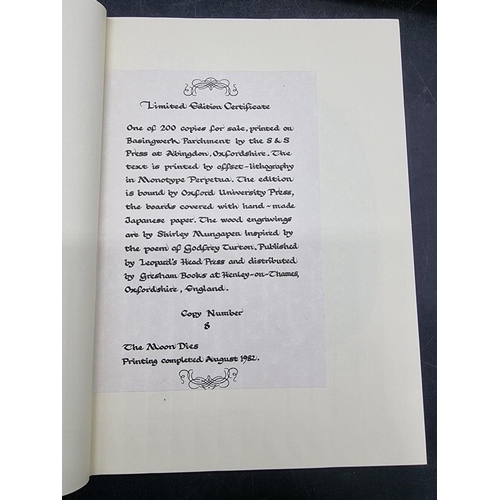 Limited Edition Certificate
One of 200 copies for sale, printed on
Basingwerk Parchment by the S & S
Press at Abingdon, Oxfordshire. The
text is printed by offset-lithography
in Monotype Perpetua. The edition
is bound by Oxford University Press,
the boards covered with hand-made
Japanese paper. The wood engravings
are by Shirley Mungapen inspired by
the poem of Godfrey Turton. Published
by Leopard's Head Press and distributed
by Gresham Books at Henley-on-Thames,
Oxfordshire, England.
Copy Number
8
The Moon Dies
Printing completed August 1982.